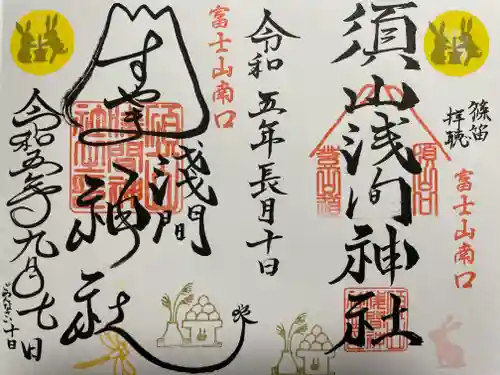 篠笛
拝聴
富士山南口
須山浅间神社
令和五年長月十日
富士山南口
すやま
浅間
神社
令和五年九月七日
ごめんなさい十日